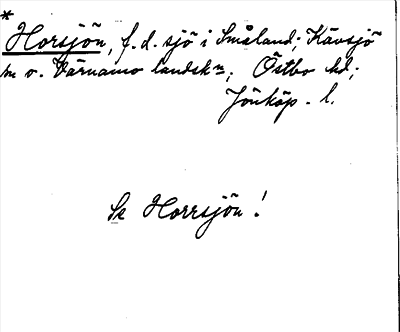 *
Horsjön, f. d. sjö i Småland; Kävsjö
m o. Värnamo landskn; Östbo hd;
Jönköp. l.
Se Horrsjön!